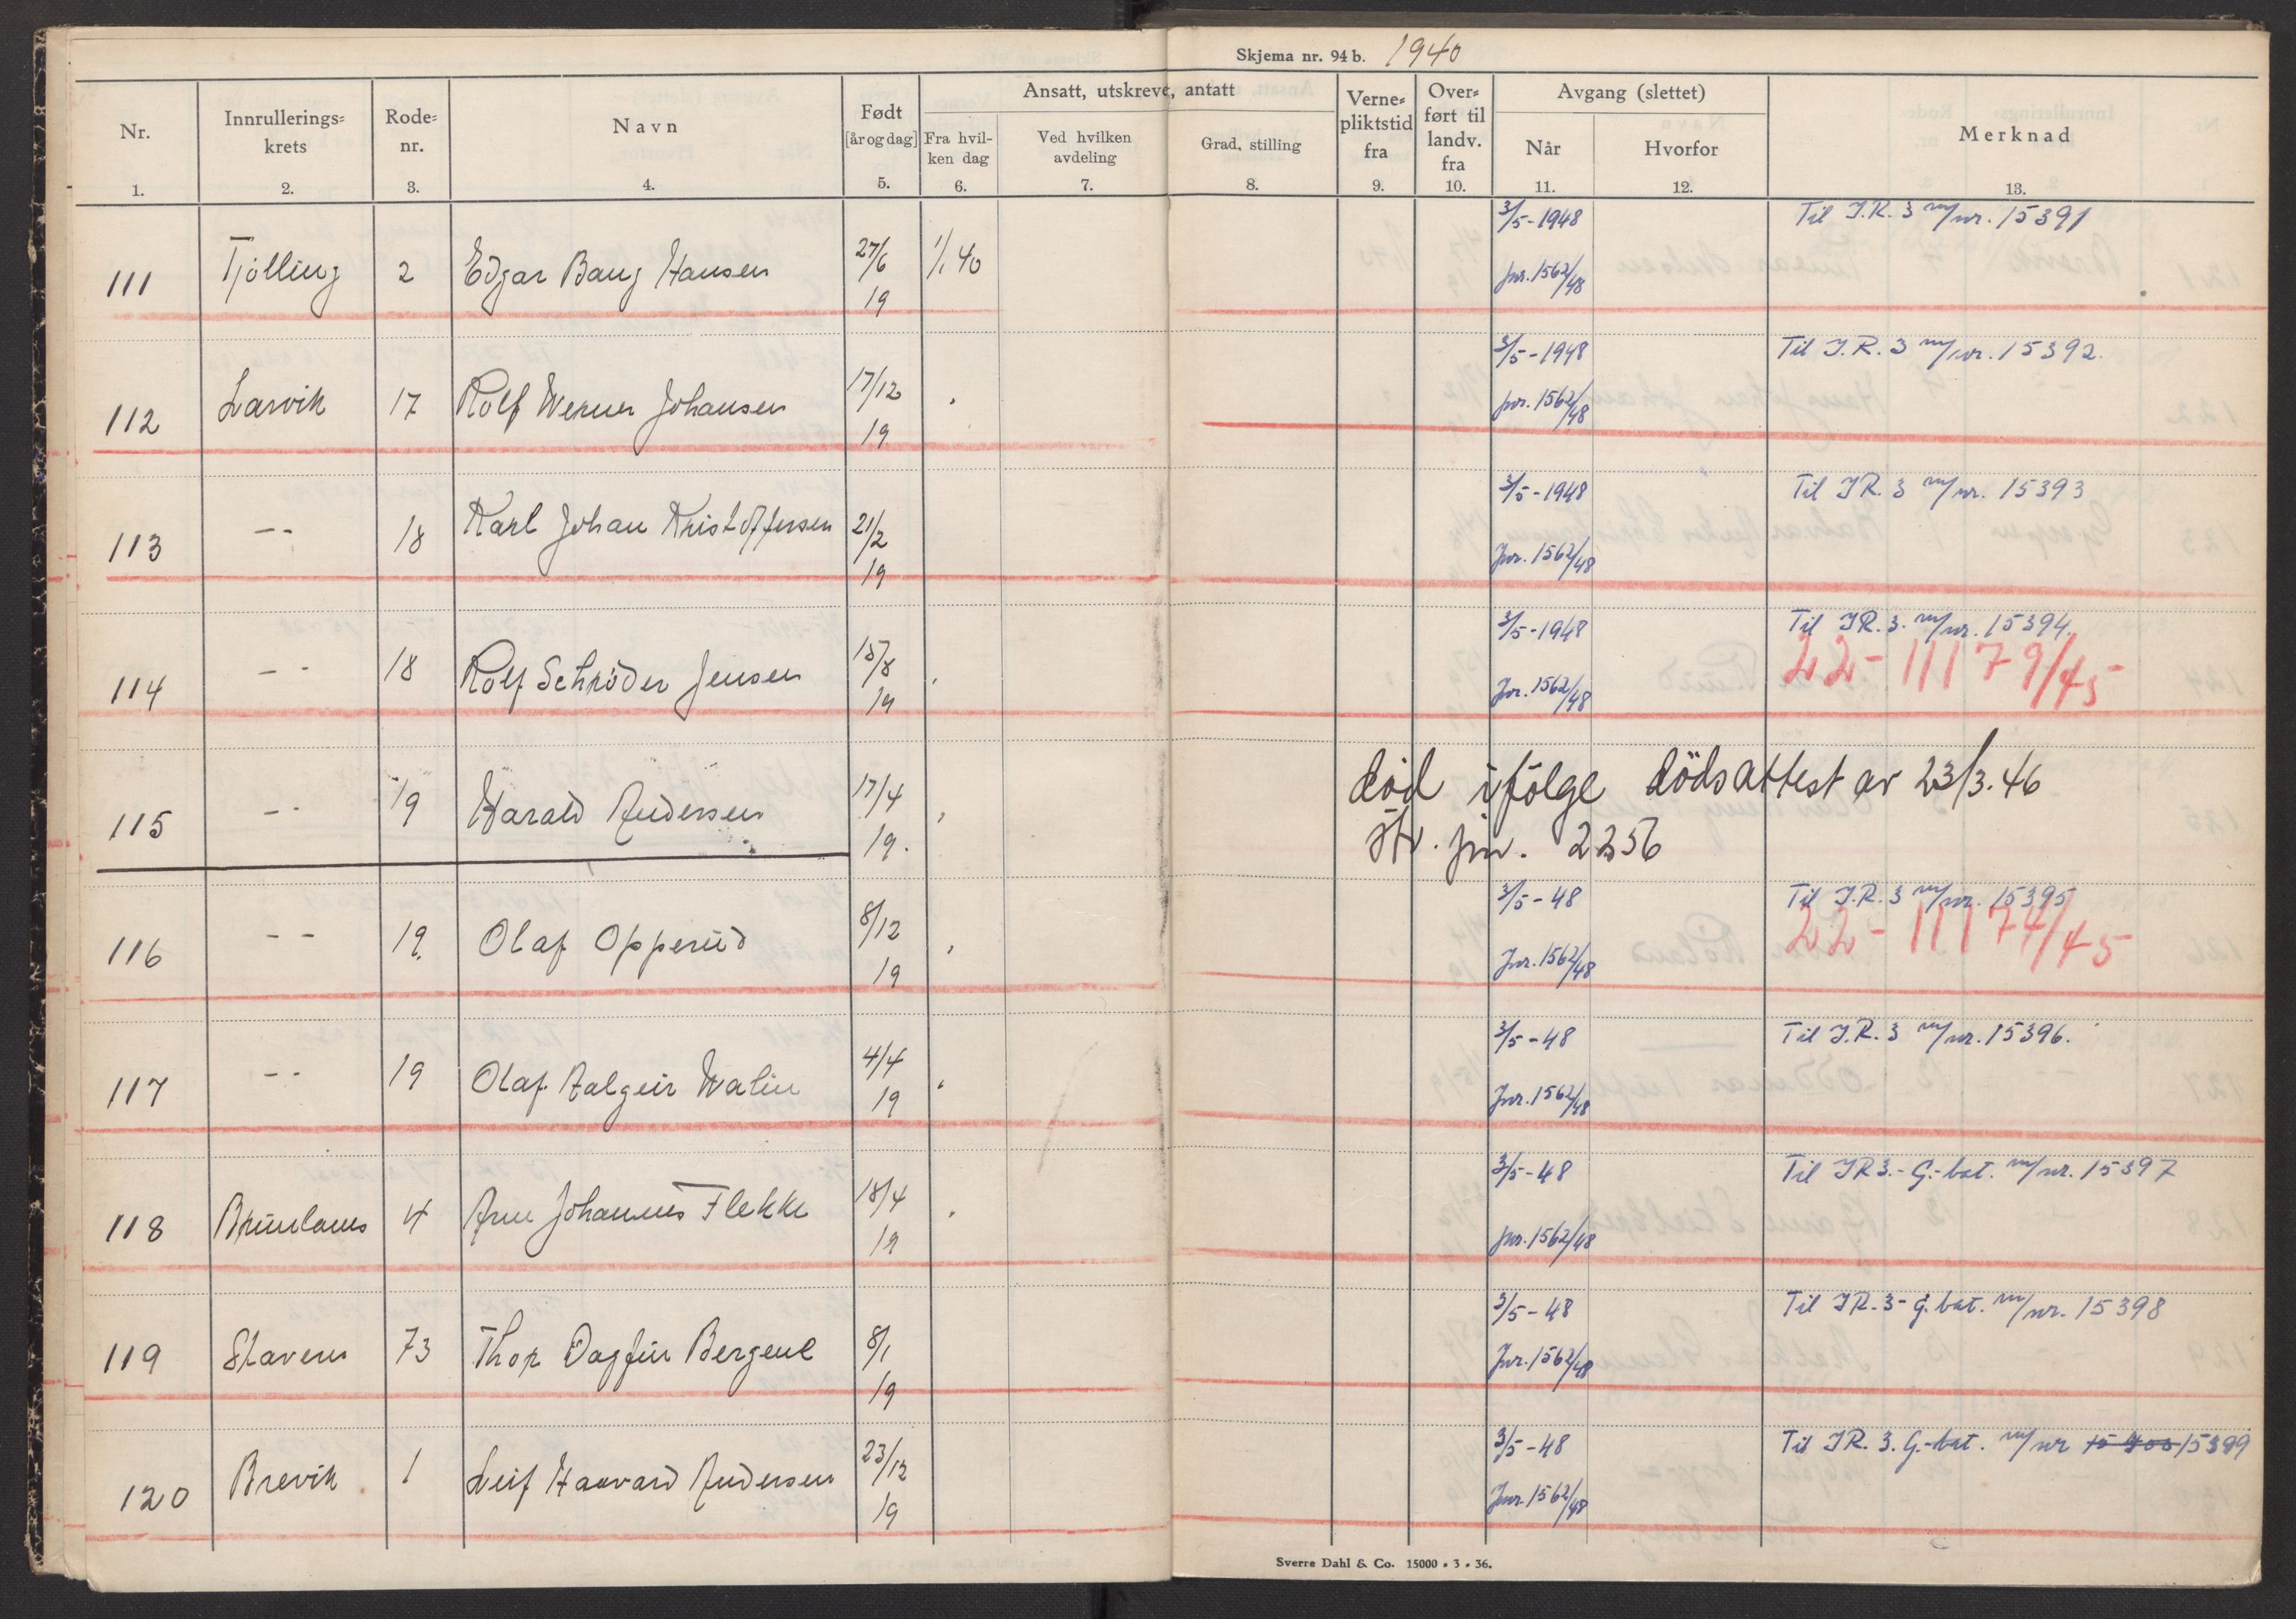 Skjema nr. 94 b. 1940
Nr. Innrullerings- krets Rode- nr. Navn Født [år og dag] Ansatt, utskrevet, antatt Fra hvil- ken dag Ved hvilken avdeling Grad, stilling Verne- pliktstid fra Over- ført til landv. fra Avgang (slettet) Når Hvorfor Merknad
1. 2. 3. 4. 5. 6. 7. 8. 9. 10. 11. 12. 13.
3/5-1948 Til I.R. 3 m/nr. 15391
111 Tjølling 2 Edgar Bang Hansen 27/6 1/1 40
19 Jnr. 1562/48
3/5-1948 Til I.R. 3 m/nr. 15392.
112 Larvik 17 Rolf Werner Johansen 17/12
19 Jnr. 1562/48
3/5-1948 Til IR. 3 m/nr. 15393
113 -- 18 Karl Johan Kristoffersen 21/2
19 Jnr. 1562/48
3/5-1948 Til IR. 3. m/nr. 15394.
22-11179/45
114 -- 18 Rolf Schröder Jensen 15/8
19 Jnr. 1562/48
115 -- 19 Harald Andersen 17/4 død ifølge dödsattest av 23/3.46
19. jnr. 2256
3/5-48 Til I.R. 3 m/nr. 15395
22-11174/45
116 -- 19. Olaf Opperud 8/12
19 Jnr. 1562/48
3/5-48 Til I.R. 3 m/nr. 15396.
117 -- 19 Olaf Aalgeir Walin 4/4
19 Jnr. 1562/48
3/5-48 Til IR3.- G.-bat. m/nr. 15397
118 Brunlanes 4 Arne Johannes Flekke 18/4
19 Jnr. 1562/48
3/5-48 Til IR.3- G.bat. m/nr. 15398
119 Stavern 73 Thor Dagfin Bergene 8/1
19 Jnr. 1562/48
3/5-48 Til IR. 3. G.-bat. m/nr 15 400 15399
120 Brevik 1 Leif Haavard Andersen 23/12
19 Jnr. 1562/48
Sverre Dahl & Co. 15000 - 3 - 36.